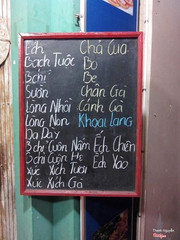 Ếch
Bạch Tuộc
B chỉ
Sườn
Lòng Nhồi
Lòng Non
Dạ Dày
B chỉ Cuộn Nấm
B chỉ Cuộn Hs
Xúc Xích Tươi
Xúc Xích Gà
Chả Cua
Bò
Bê
Chân Gà
Cánh Gà
Khoai Lang
Ếch Chiên
Ếch Xào